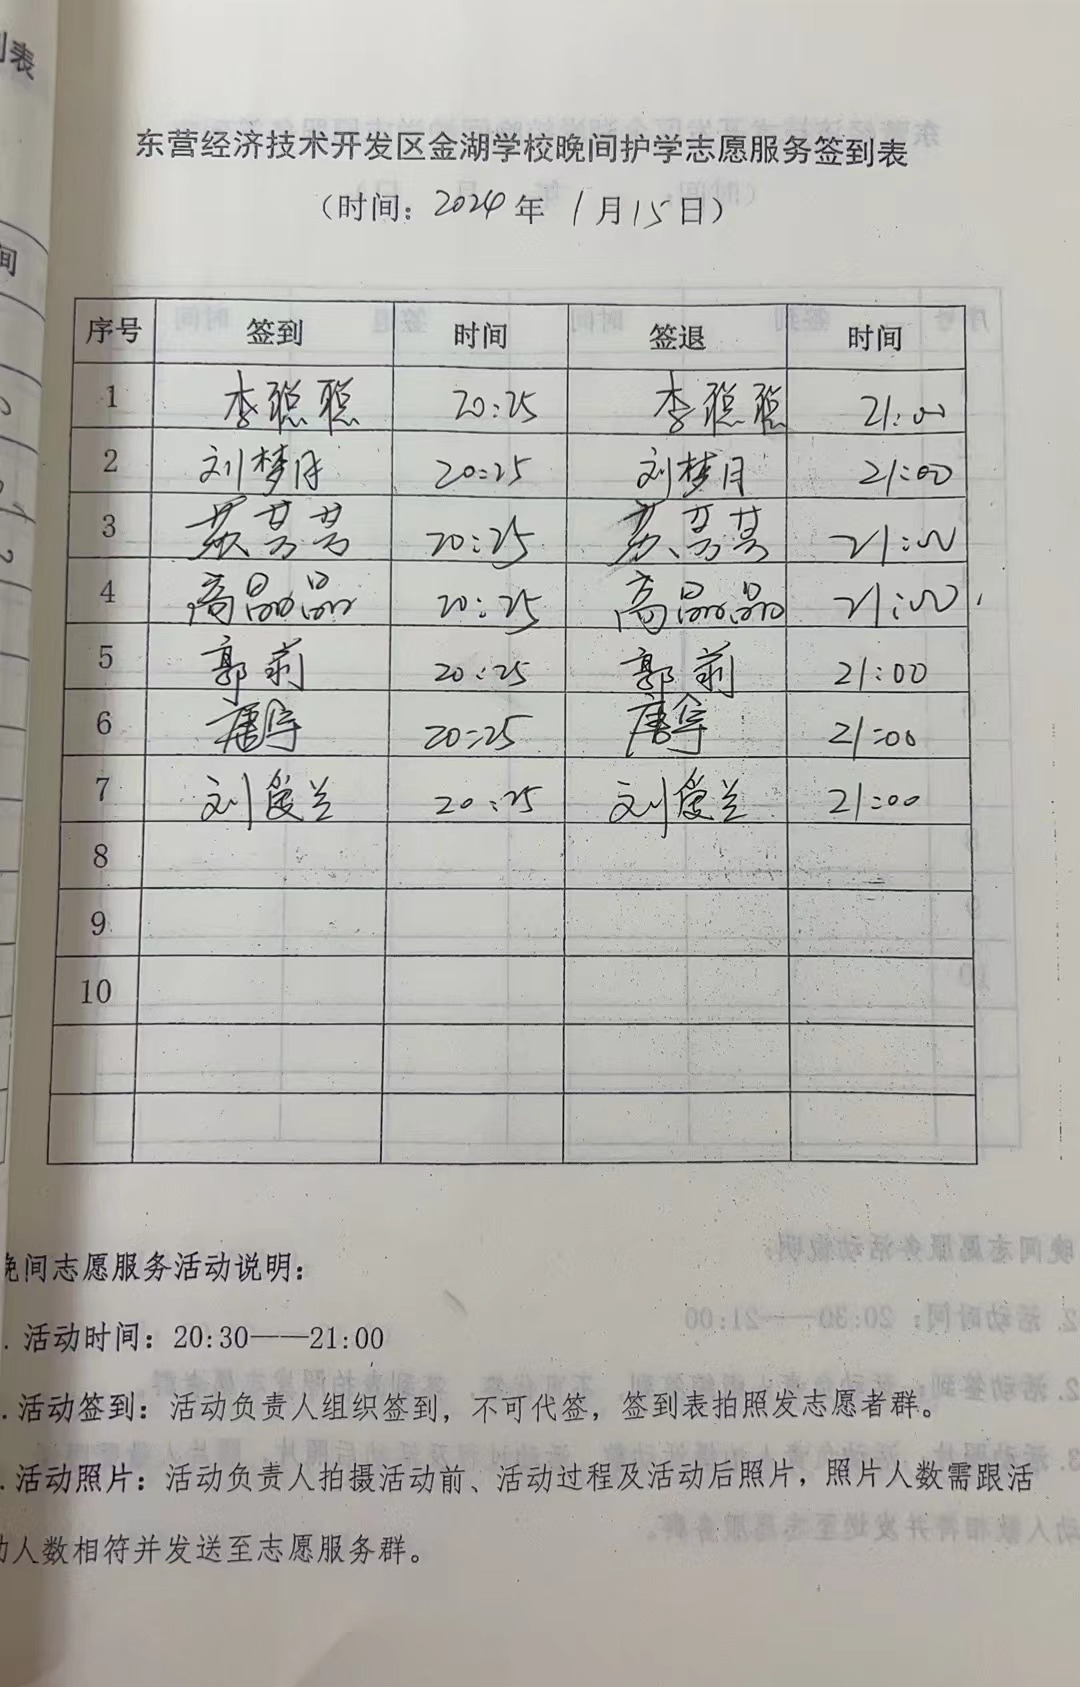 东营经济技术开发区金湖学校晚间护学志愿服务签到表
（时间：2024年 1月15日）
序号 签到 时间 签退 时间
1 李聪聪 20:25 李聪聪 21:00
2 刘梦月 20:25 刘梦月 21:00
3 芳芳 20:25 芳芳 21:00
4 高晶晶 20:25 高晶晶 21:00
5 郭莉 20:25 郭莉 21:00
6 唐宇 20:25 唐宇 21:00
7 刘爱兰 20:25 刘爱兰 21:00
8
9
10
晚间志愿服务活动说明：
. 活动时间：20:30——21:00
. 活动签到：活动负责人组织签到，不可代签，签到表拍照发志愿者群。
. 活动照片：活动负责人拍摄活动前、活动过程及活动后照片，照片人数需跟活
动人数相符并发送至志愿服务群。